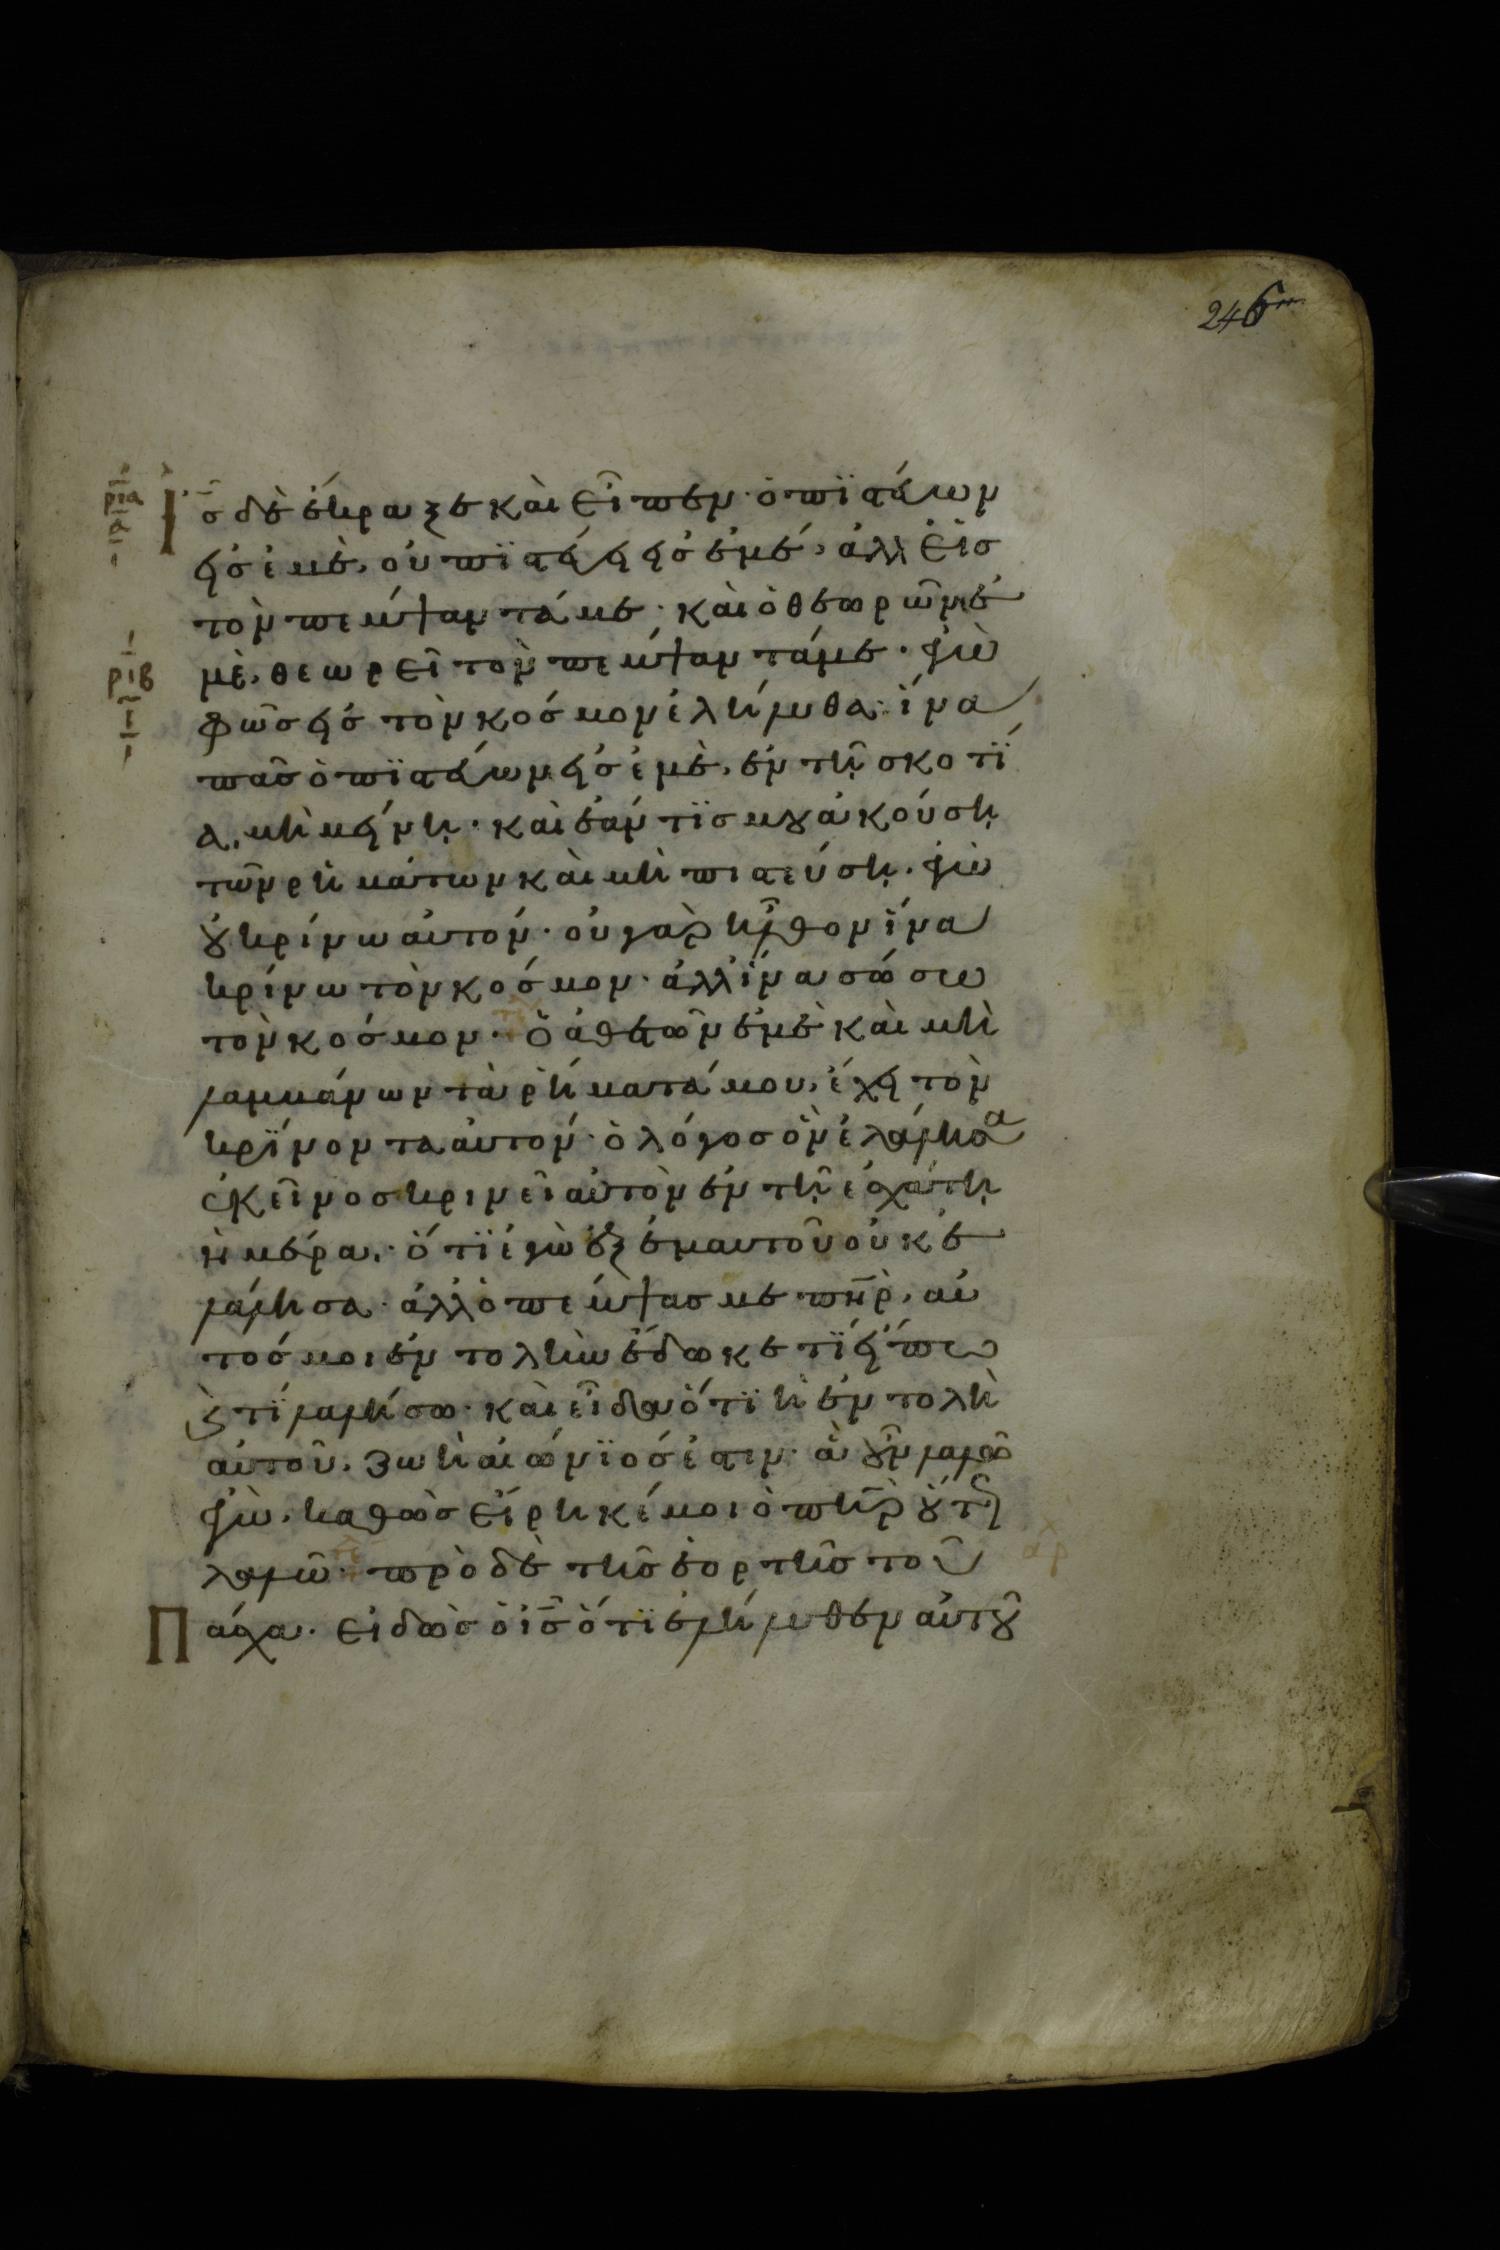 246
ρια
α
Ις δὲ ἔκραξε καὶ εἶπεν· ὁ πϊστεύων
εἰς ἐμὲ, οὐ πϊστεύει εἰς ἐμέ, ἀλλ εἰς
τὸν πέμψαντά με· καὶ ὁ θεωρῶν ἐ
μὲ, θεωρεῖ τὸν πέμψαντά με· ἐγὼ
ριβ
ι
φῶς εἰς τὸν κόσμον ἐλήλυθα· ἵνα
πᾶς ὁ πϊστεύων εἰς ἐμὲ, ἐν τῆ σκοτί
α, μὴ μείνη· καὶ ἐάν τϊς μου ἀκούση
τῶν ρημάτων καὶ μὴ πιστεύση· ἐγὼ
οὐ κρίνω αὐτόν· οὐ γὰρ ἦλθον ἵνα
κρίνω τὸν κόσμον· ἀλλ ἵνα σώσω
τὸν κόσμον· ὁ ἀθετῶν ἐμὲ καὶ μὴ
λαμβάνων τὰ ρήματά μου, ἔχει τὸν
κρϊνοντα αὐτόν· ὁ λόγος ὃν ἐλάλησα
ἐκεῖνος κρινεῖ αὐτὸν ἐν τῆ ἐσχάτη
ἡμέρα, ὅτϊ ἐγὼ ἐξ ἐμαυτοῦ οὐκ ἐ
λάλησα· ἀλλ ὁ πέμψας με πηρ, αὐ
τός μοι ἐντολὴν ἔδωκε τΐ εἴπω
ϗ τί λαλήσω· καὶ εἶδα ὅτϊ ἡ ἐντολὴ
αὐτοῦ, ζωὴ αἰώνϊος ἐστιν· ἃ οὖν λαλῶ
ἐγὼ, καθὼς εἴρηκέ μοι ὁ πηρ οὕτως
λαλῶ· πρὸ δὲ τῆς ἑορτῆς τοῦ
αρχ
Πάσχα· εἰδὼς ὁ ις ὅτϊ ἐλήλυθεν αὐτοῦ